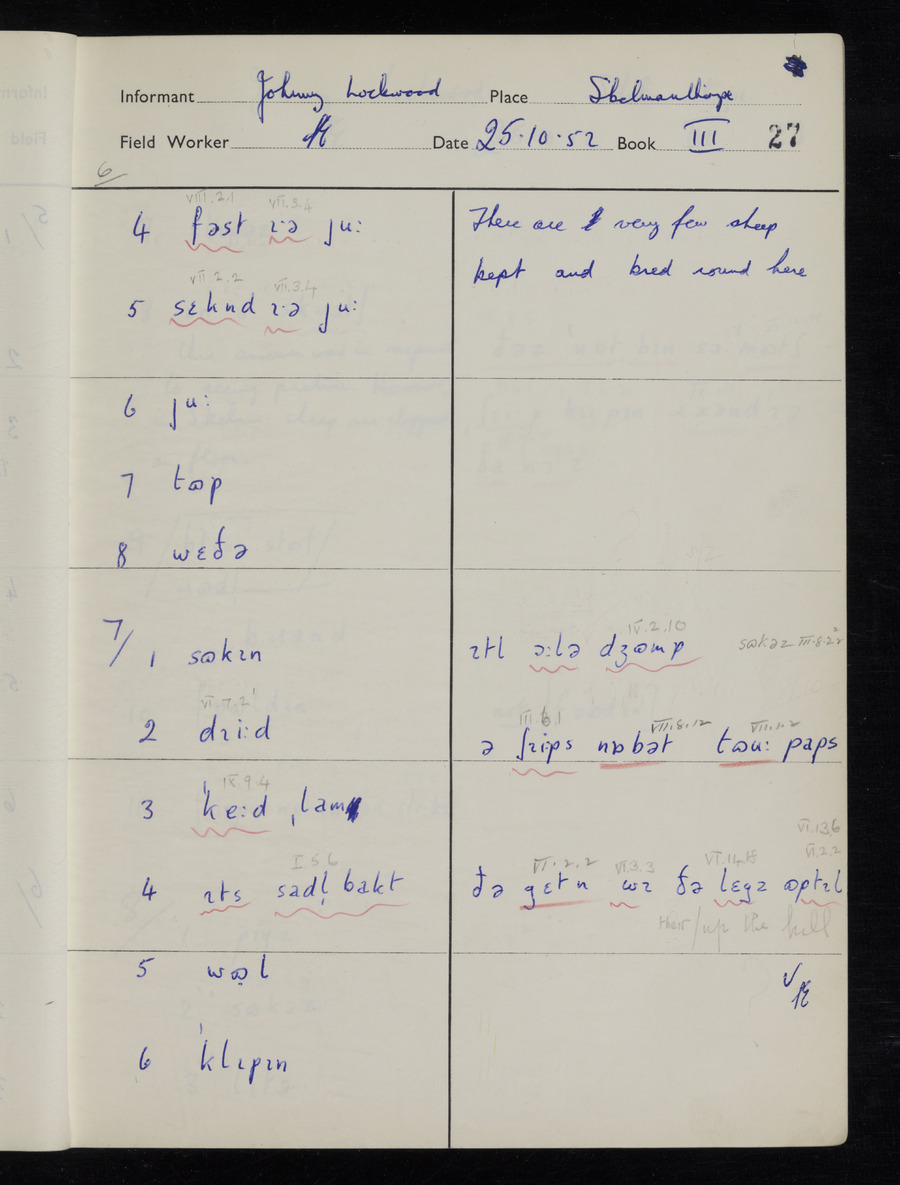 Informant Johnny Lockwood Place Skelmanthorpe
Field Worker Date 25·10·52 Book III 27
6/
VIII.2.1 VII.3.4
4 fəst ɪ·ə ju: There are very few sheep
kept and bred round here
VII.2.2 VII.3.4
5 sɛknd ɪ·ə ju:
6 ju:
7 tɷp
8 wɛðə
7/ 1 sɷkɪn ɪtl ɔ:lə dʒɷmp sɷkəz III.8.2
IV.2.10
VI.7.2
2 dɹi:d ə ʃɹips nɒbət tɷu: paps
III.6.1 VII.8.12 VII.1.2
IX.9.4
3 ˈke:d ˌlam
I.5.6
4 ɪts sadl̩ bakt ðə gɛtn wɪ ðə lɛgz ɷptɪl
VI.2.2 VI.3.3 VI.13.6 VI.2.2
their/up the hill
5 wɷl
6 ˈklɪpɪn